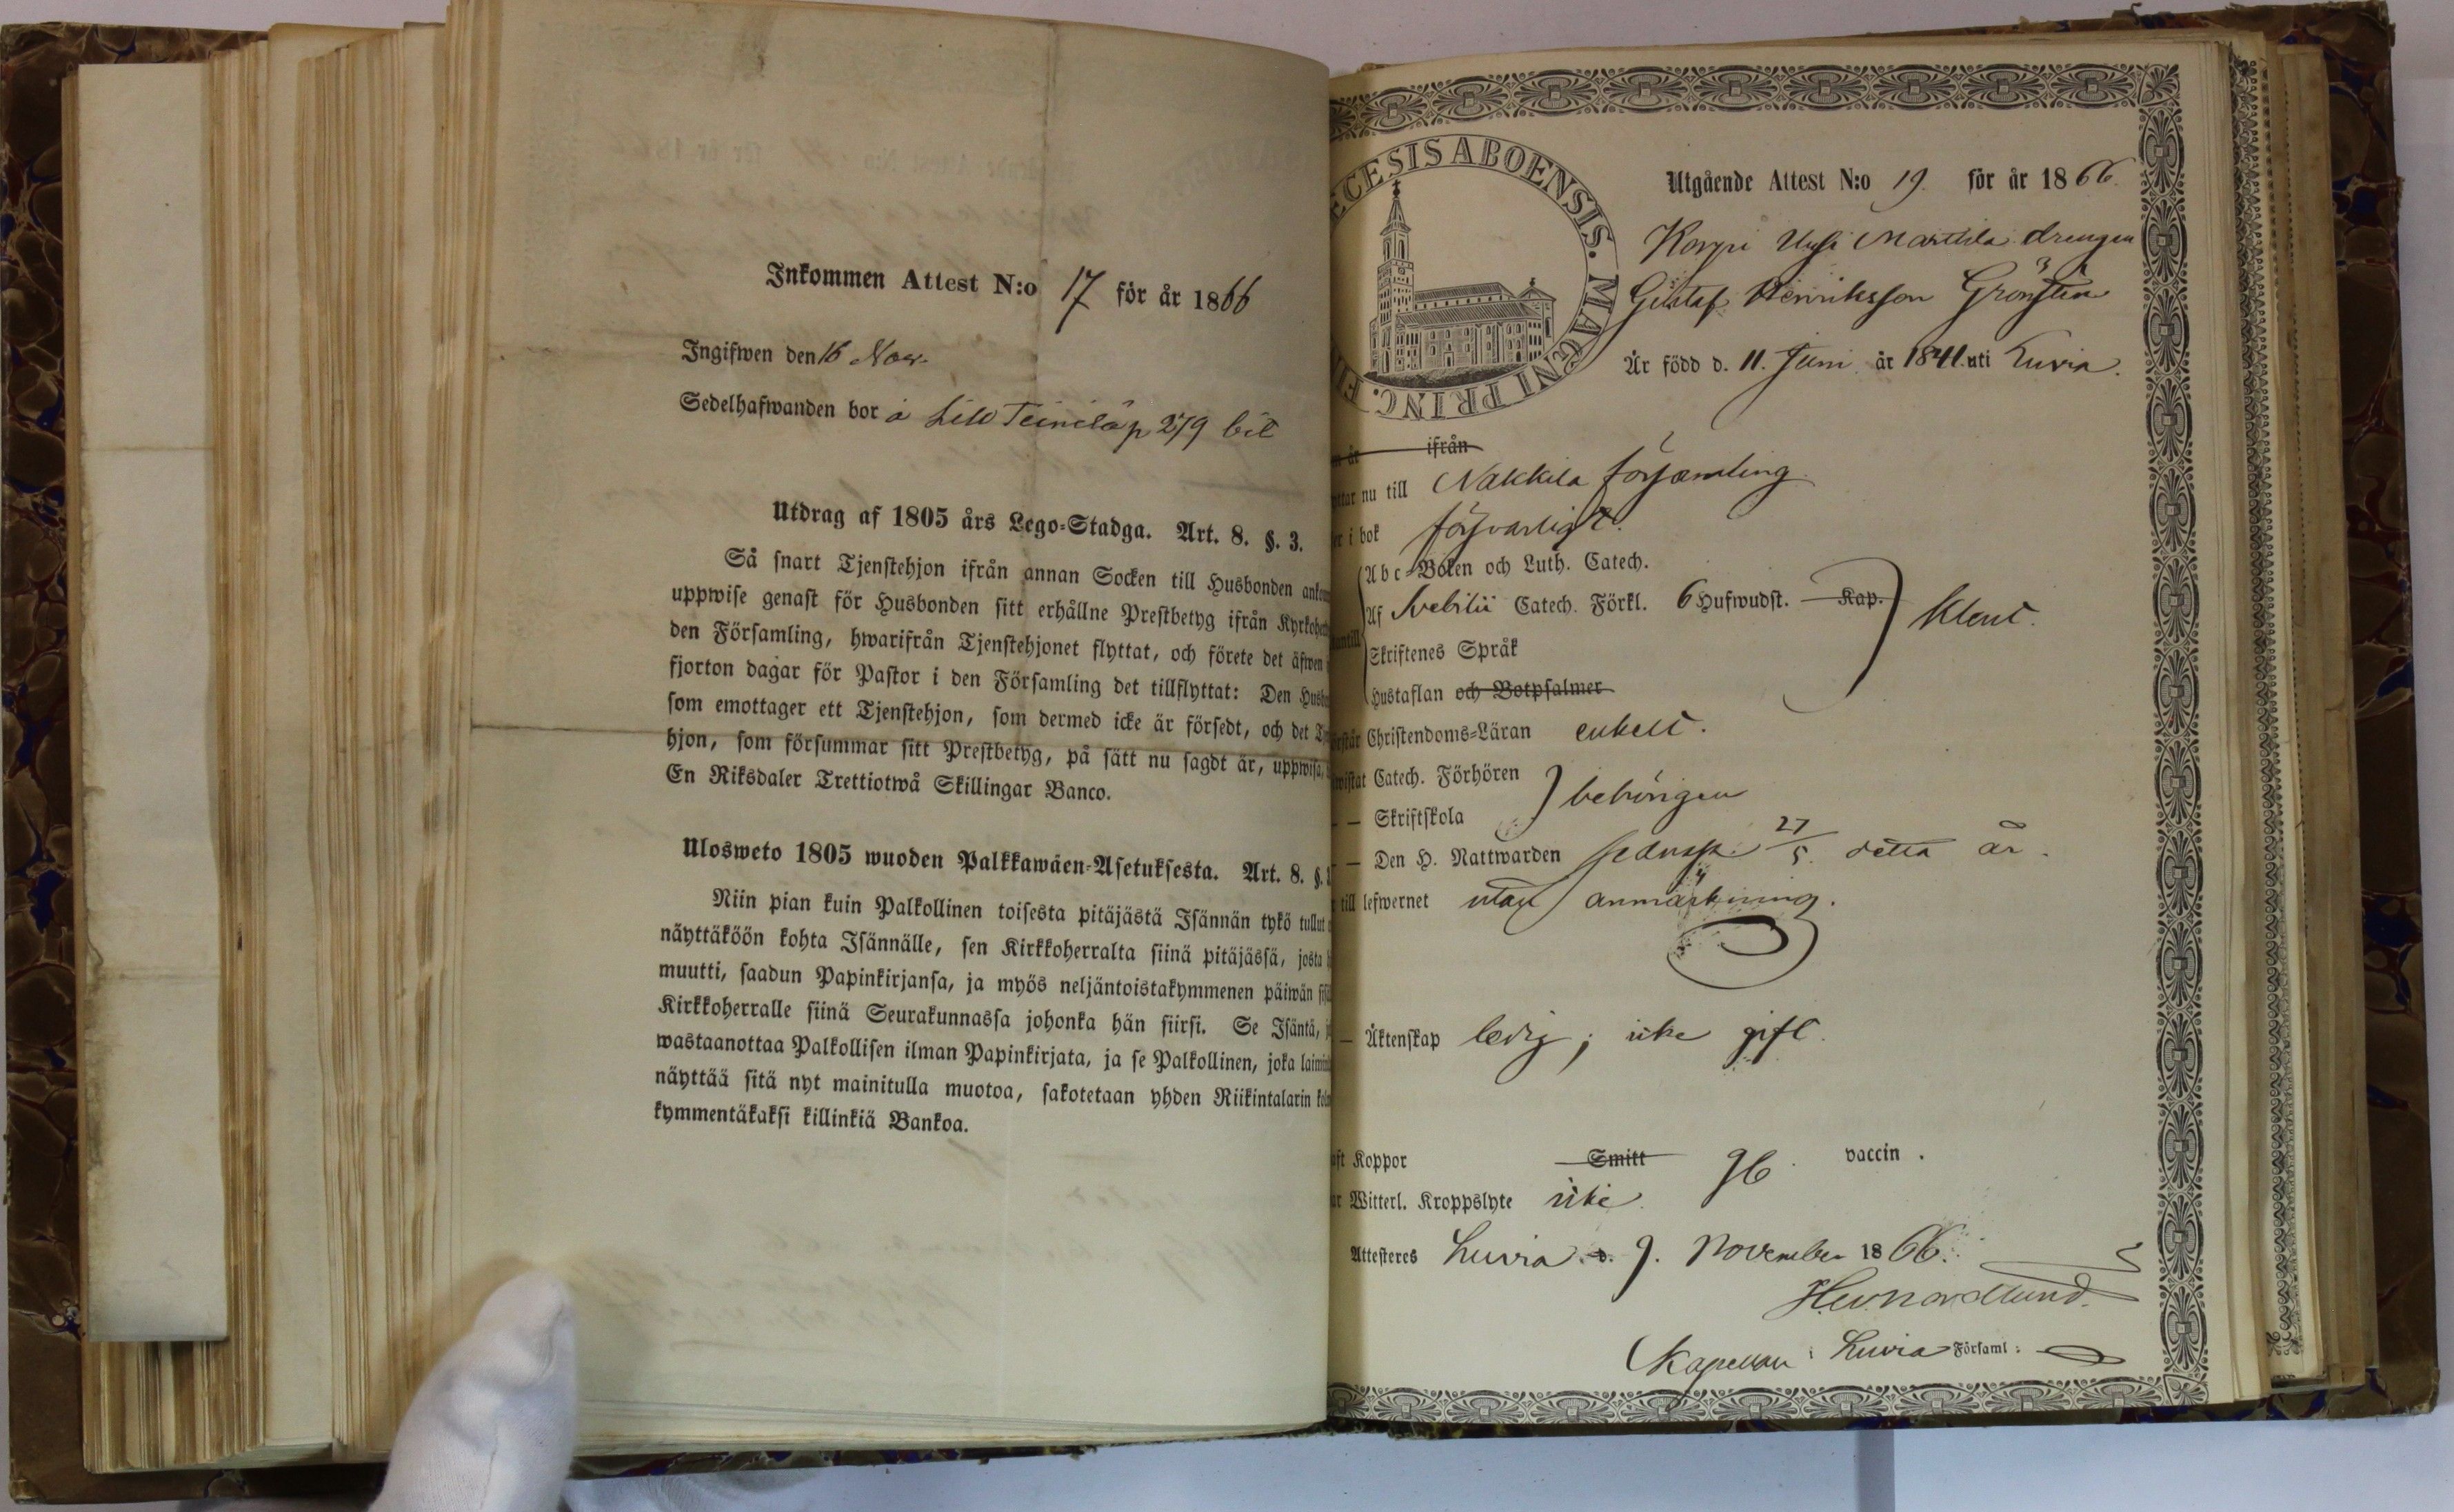 Inkommen Attest N:o 17 för år 1866
Ingifwen den 16 Nov.
Sedelhafwanden bor å Lill Teinilä p 279 bit
Utdrag af 1805 års Lego-Stadga. Art. 8. §. 3.
Så snart Tjenstehjon ifrån annan Socken till Husbonden
uppwise genast för Husbonden sitt erhållne Prestbetyg ifrån
den Församling, hwarifrån Tjenstehjonet flyttat, och förete det äfwen
fjorton dagar för Pastor i den Församling det tillflyttat: Den
som emottager ett Tjenstehjon, som dermed icke är försedt, och det
hjon, som försummar sitt Prestbetyg, på sätt nu sagdt är, uppwisa,
En Riksdaler Trettiotwå Skillingar Banco.
Ulosweto 1805 wuoden Palkkawäen-Asetuksesta. Art. 8. §.
Niin pian kuin Palkollinen toisesta pitäjästä Isännän tykö tullut
näyttäköön kohta Isännälle, sen Kirkkoherralta siinä pitäjässä, josta
muutti, saadun Papinkirjansa, ja myös neljäntoistakymmenen päiwän
Kirkkoherralle siinä Seurakunnassa johonka hän siirsi. Se Isäntä,
wastaanottaa Palkollisen ilman Papinkirjata, ja se Palkollinen, joka
näyttää sitä nyt mainitulla muotoa, sakotetaan yhden Riikintalarin
kymmentäkaksi killinkiä Bankoa.
ECESIS ABOENSIS. MAGNI PRINC. FI
Utgående Attest N:o 19. för år 1866.
Korpi Uusi Marttila drengen
Gustaf Henriksson Grönsten
Är född d. 11. Juni år 1841. uti Luvia.
år ifrån
nu till Nakkila församling
i bok försvarligt.
Abc-Boken och Luth. Catech.
Af Svebilii Catech. Förkl. 6 Hufwudst. Kap. klent.
Skriftenes Språk
Hustaflan och Botpsalmer
Christendoms-Läran enkelt.
Catech. Förhören
— Skriftskola behörigen
— Den H. Nattwarden sednast 27/5. detta år.
till lefwernet utan anmärkning.
— Äktenskap ledig; icke gift.
Koppor Smitt gb. vaccin.
Witterl. Kroppslyte icke.
Attesteres Luvia d. 9. November 1866.
Nordlund.
Kapellan i Luvia Församl: